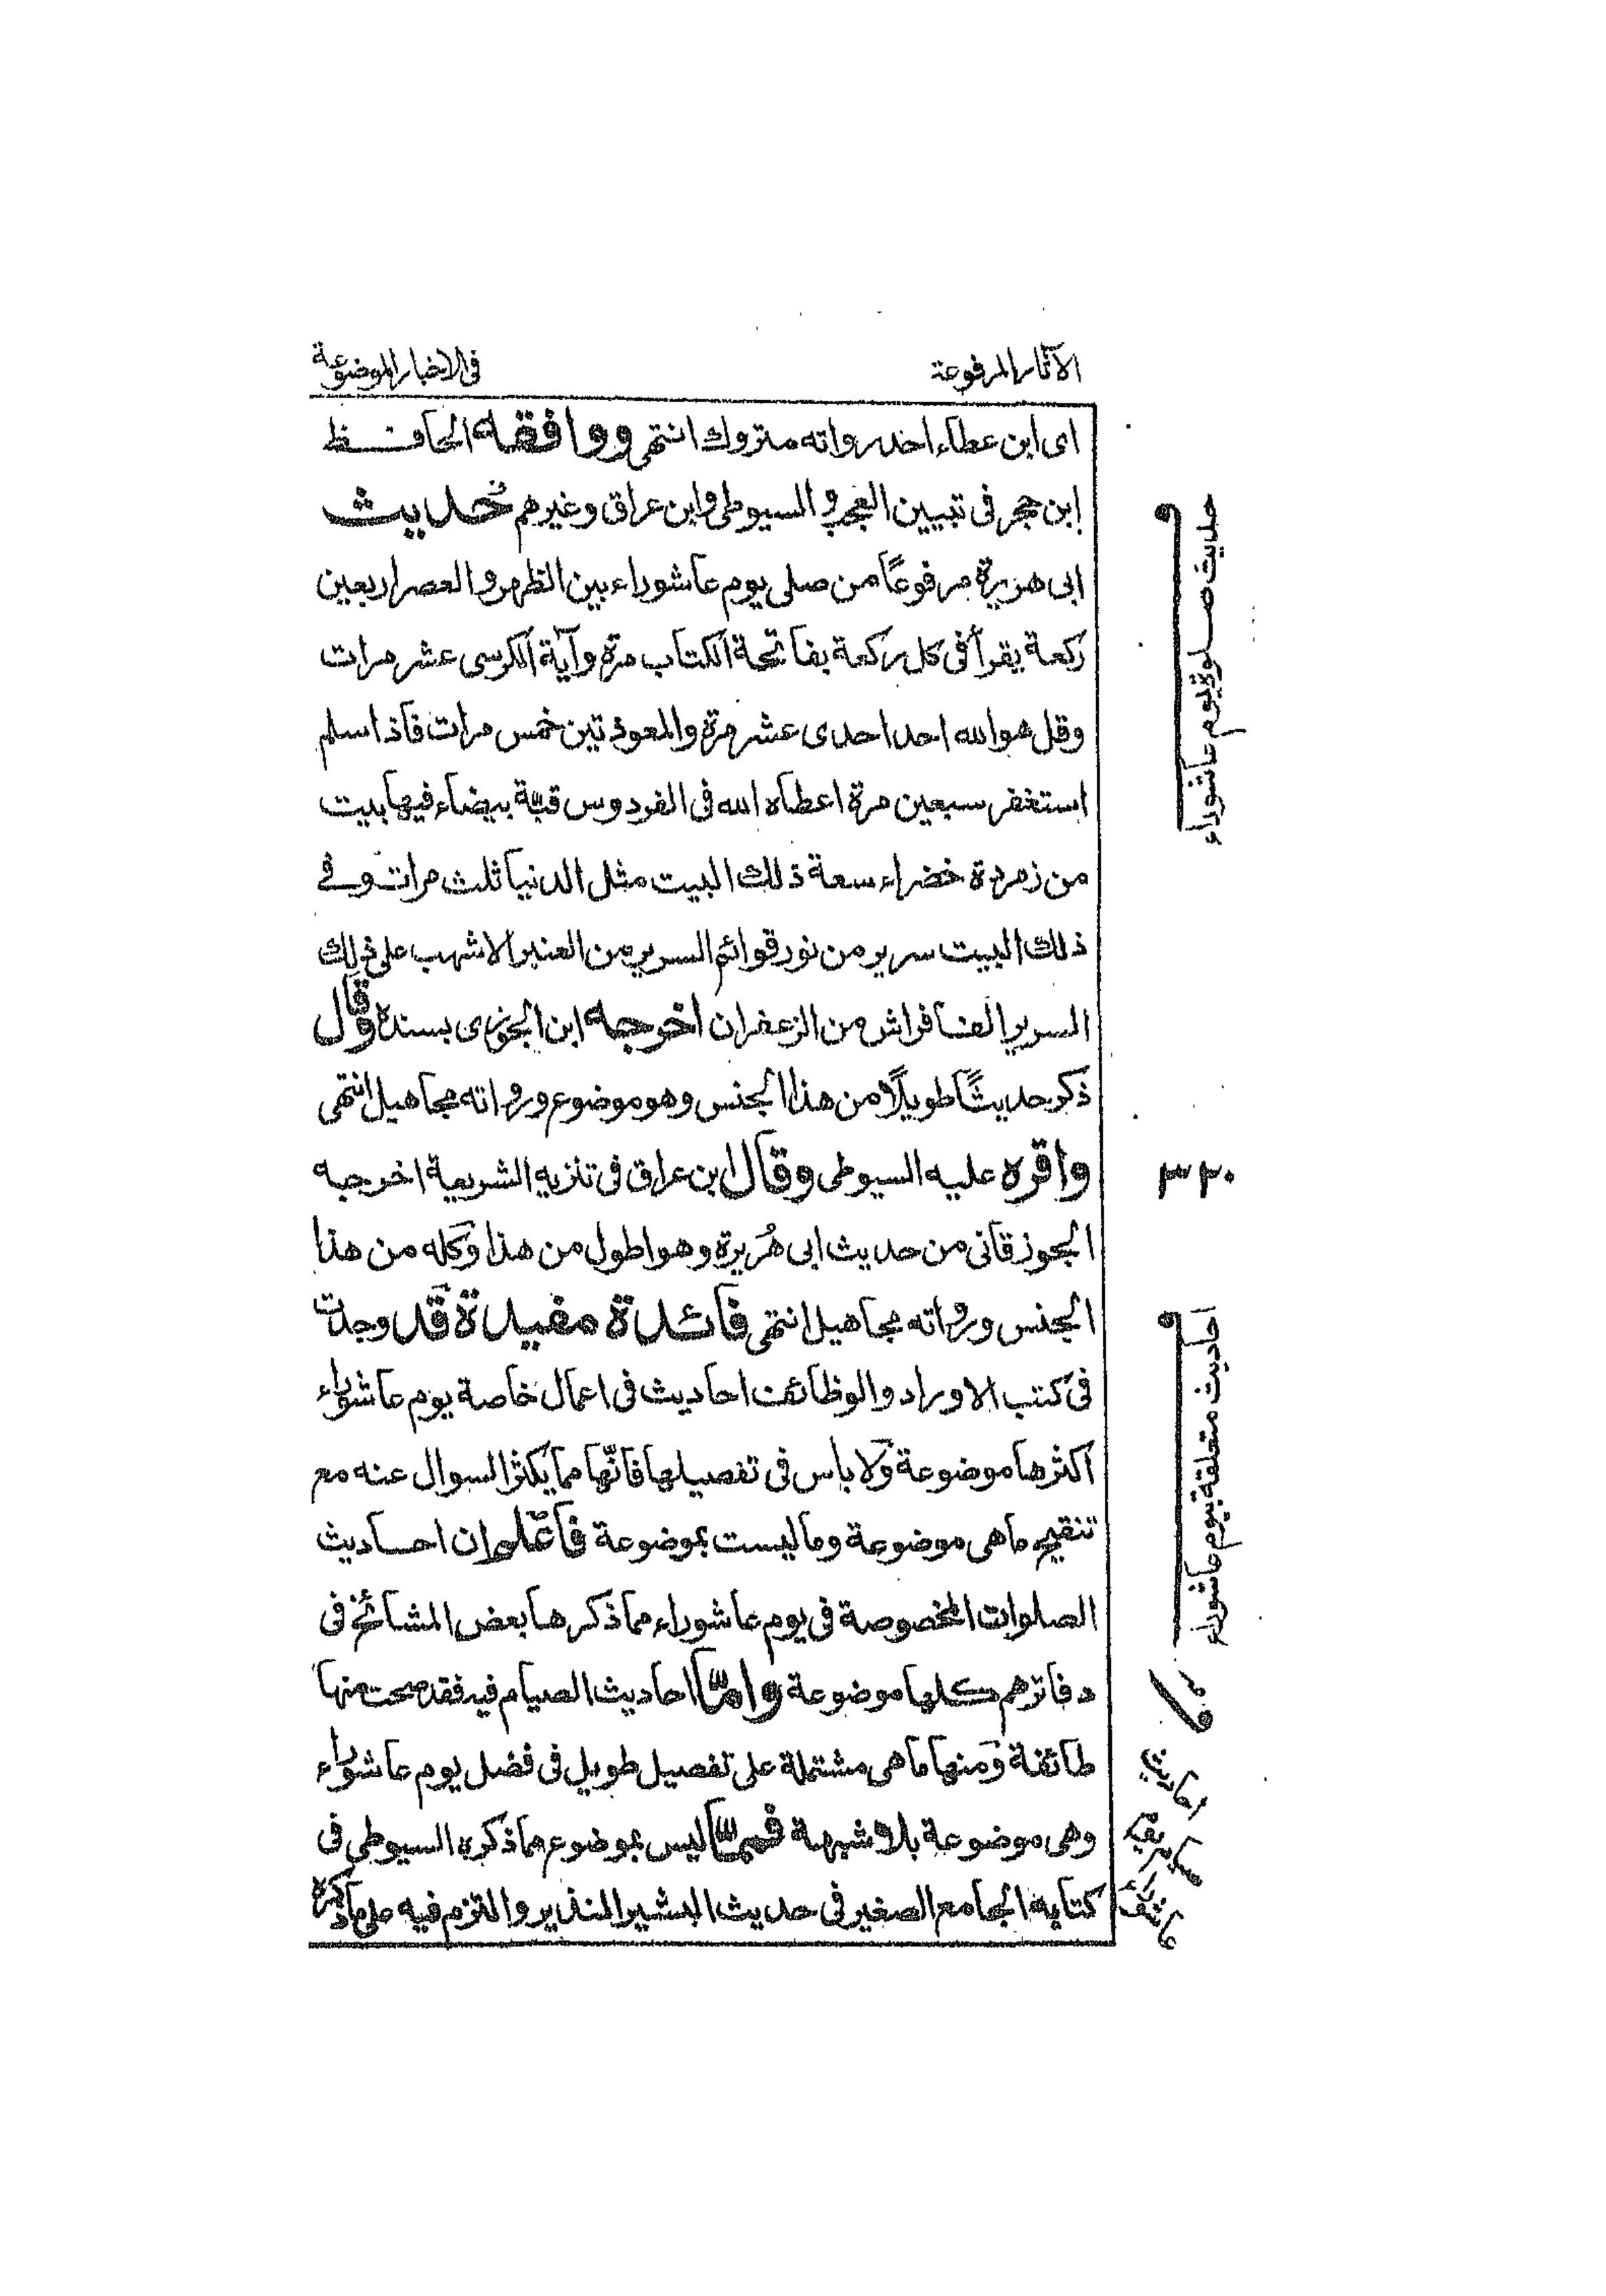 الآثار المرفوعة
فی الاخبار الموضوعة
ای ابن عطاء احد رواته متروك انتهی ووافقه الحافظ
ابن حجر فی تبیین العجب والسیوطی وابن عراق وغیرهم حدیث
ابی هریرة مرفوعًا من صلی یوم عاشوراء بین الظهر والعصر اربعین
ركعة یقرأ فی كل ركعة بفاتحة الكتاب مرة وآیة الكرسی عشر مرات
وقل هو الله احد احدی عشر مرة والمعوذتین خمس مرات فاذا سلم
استغفر سبعین مرة اعطاه الله فی الفردوس قبّة بیضاء فیها بیت
من زمردة خضراء سعة ذلك البیت مثل الدنیا ثلث مرات وفی
ذلك البیت سریر من نور قوائم السریر من العنبر الاشهب علی ذلك
السریر الف فراش من الزعفران اخرجه ابن الجوزی بسنده وقال
ذكر حدیثًا طویلًا من هذا الجنس وهو موضوع ورواته مجاهیل انتهی
واقره علیه السیوطی وقال ابن عراق فی تنزیه الشریعة اخرجه
الجوزقانی من حدیث ابی هُریرة وهو اطول من هذا وكله من هذا
الجنس ورواته مجاهیل انتهی فائدة مفیدة قد وجدت
فی كتب الاوراد والوظائف احادیث فی اعمال خاصة یوم عاشوراء
اكثرها موضوعة ولا باس فی تفصیلها فانّها مما یكثر السوال عنه مع
تنقیح ما هی موضوعة وما لیست بموضوعة فاعلم ان احادیث
الصلوات المخصوصة فی یوم عاشوراء مما ذكرها بعض المشائخ فی
دفاترهم كلها موضوعة وامّا احادیث الصیام فیه فقد صحت منها
طائفة ومنها ما هی مشتملة علی تفصیل طویل فی فضل یوم عاشوراء
وهی موضوعة بلا شبهة فممّا لیس بموضوع مما ذكره السیوطی فی
كتابه الجامع الصغیر فی حدیث البشیر النذیر والتزم فیه علی ما ذكره
حدیث صلوة یوم عاشوراء
٣٢٠
احادیث متعلقة بیوم عاشوراء
احادیث